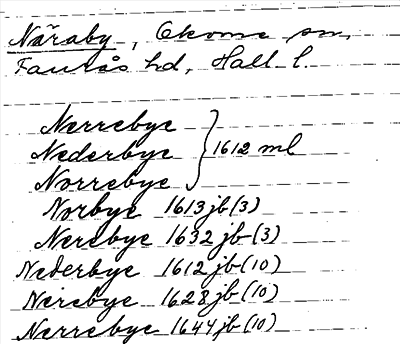 Näraby, Okome sn,
Faurås hd, Hall. l.
Nerrebye
Nederbye } 1612 ml
Norrebye
Norbye 1613 jb (3)
Nerebye 1632 jb (3)
Nederbye 1612 jb (10)
Neirebye 1628 jb (10)
Nerrebye 1644 jb (10)